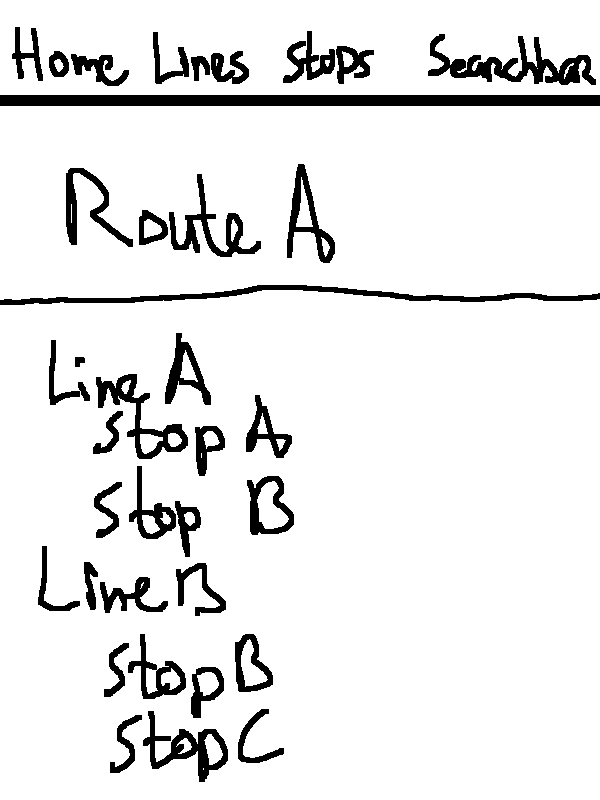 Home Lines Stops Searchbar
Route A
Line A
Stop A
Stop B
Line B
Stop B
Stop C